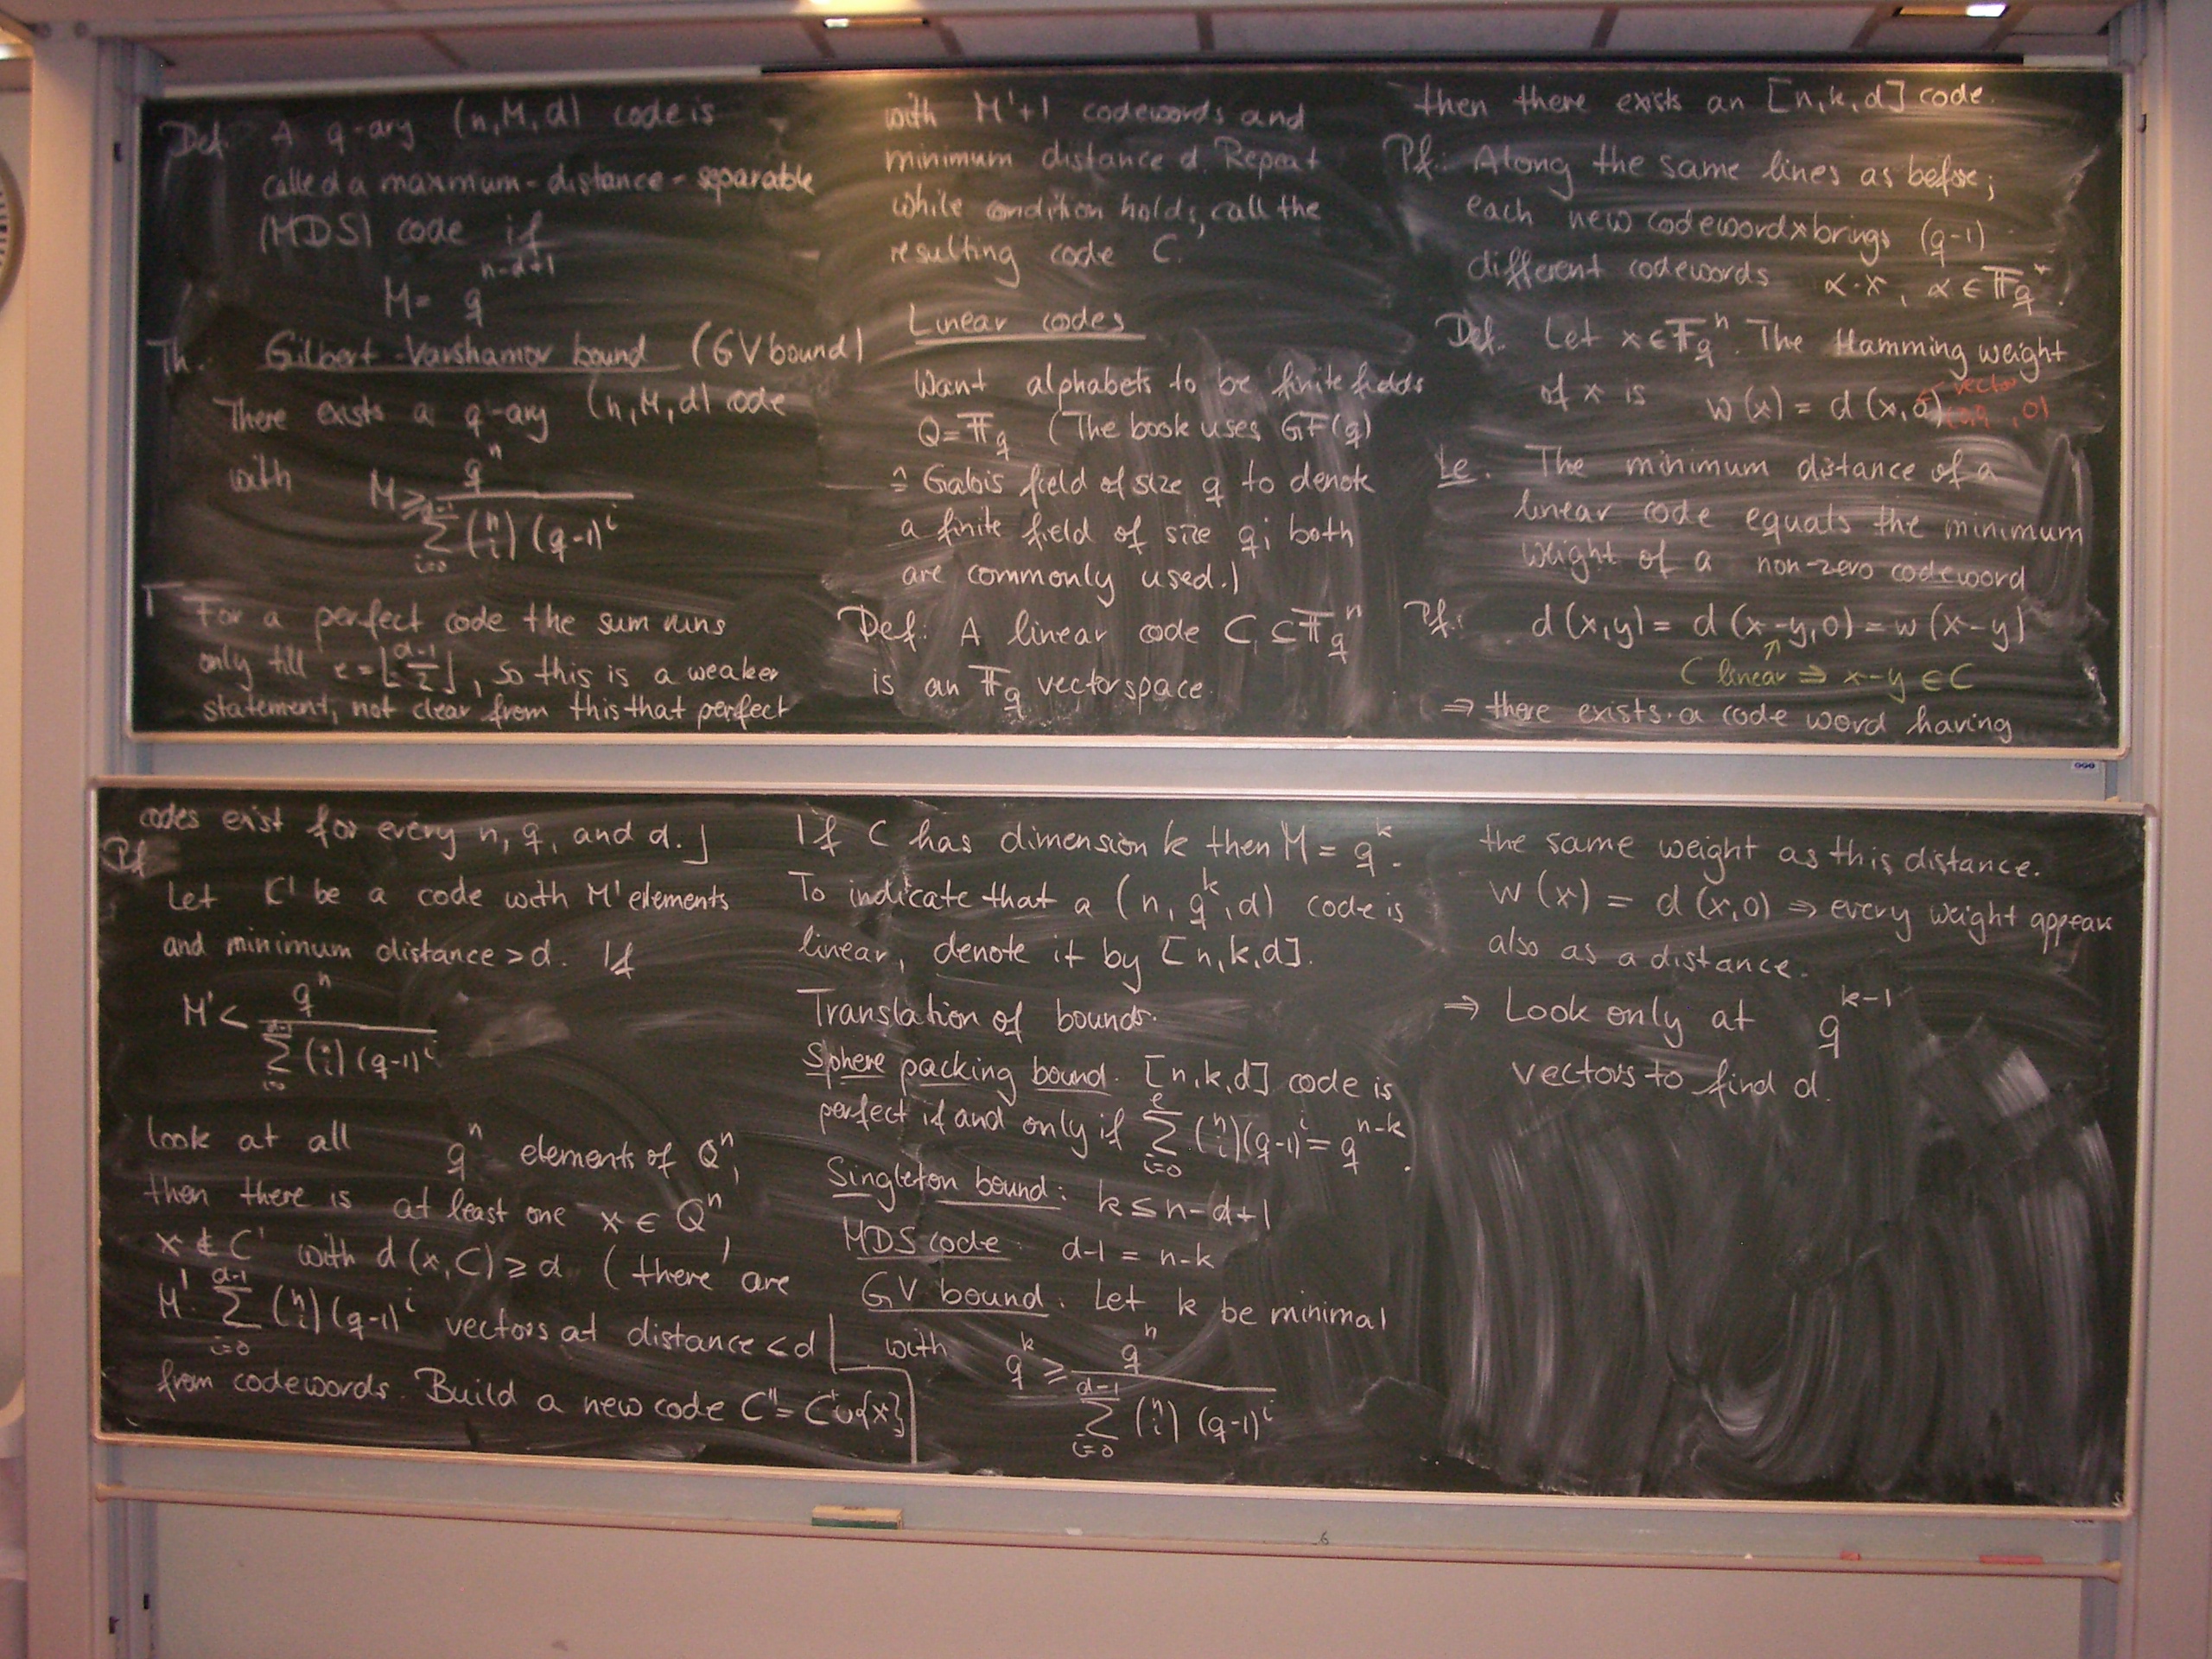 Def. A q-ary (n,M,d) code is
called a maxmum-distance-separable
(MDS) code if
M = q^{n-d+1}
Th. Gilbert-Varshamov bound (GV bound)
There exists a q-ary (n,M,d) code
with M ≥ q^n / \sum_{i=0}^{d-1} \binom{n}{i} (q-1)^i
⌈ For a perfect code the sum runs
only till e = ⌊(d-1)/2⌋, so this is a weaker
statement, not clear from this that perfect
codes exist for every n, q, and d. ⌋
Pf
Let C' be a code with M' elements
and minimum distance > d. If
M' < q^n / \sum_{i=0}^{d-1} \binom{n}{i} (q-1)^i
look at all q^n elements of Q^n,
then there is at least one x ∈ Q^n,
x ∉ C' with d(x,C) ≥ d (there are
M' · \sum_{i=0}^{d-1} \binom{n}{i} (q-1)^i vectors at distance < d
from codewords. Build a new code C'' = C' ∪ {x}
with M'+1 codewords and
minimum distance d. Repeat
while condition holds, call the
resulting code C.
Linear codes
Want alphabets to be finite fields
Q = 𝔽_q (The book uses GF(q)
≙ Galois field of size q to denote
a finite field of size q; both
are commonly used.)
Def: A linear code C ⊆ 𝔽_q^n
is an 𝔽_q vectorspace.
If C has dimension k then M = q^k.
To indicate that a (n, q^k, d) code is
linear, denote it by [n,k,d].
Translation of bounds.
Sphere packing bound. [n,k,d] code is
perfect if and only if \sum_{i=0}^{e} \binom{n}{i} (q-1)^i = q^{n-k}.
Singleton bound: k ≤ n-d+1
MDS code: d-1 = n-k
GV bound: Let k be minimal
with q^k ≥ q^n / \sum_{i=0}^{d-1} \binom{n}{i} (q-1)^i
then there exists an [n,k,d] code.
Pf: Along the same lines as before;
each new codeword x brings (q-1)
different codewords α·x, α ∈ 𝔽_q^*.
Def. Let x ∈ 𝔽_q^n. The Hamming weight
of x is w(x) = d(x,0) ← vector
Le. The minimum distance of a
linear code equals the minimum
weight of a non-zero codeword
Pf: d(x,y) = d(x-y,0) = w(x-y)
↑ C linear ⇒ x-y ∈ C
⇒ there exists a code word having
the same weight as this distance.
w(x) = d(x,0) ⇒ every weight appears
also as a distance.
⇒ Look only at q^{k-1}
vectors to find d.